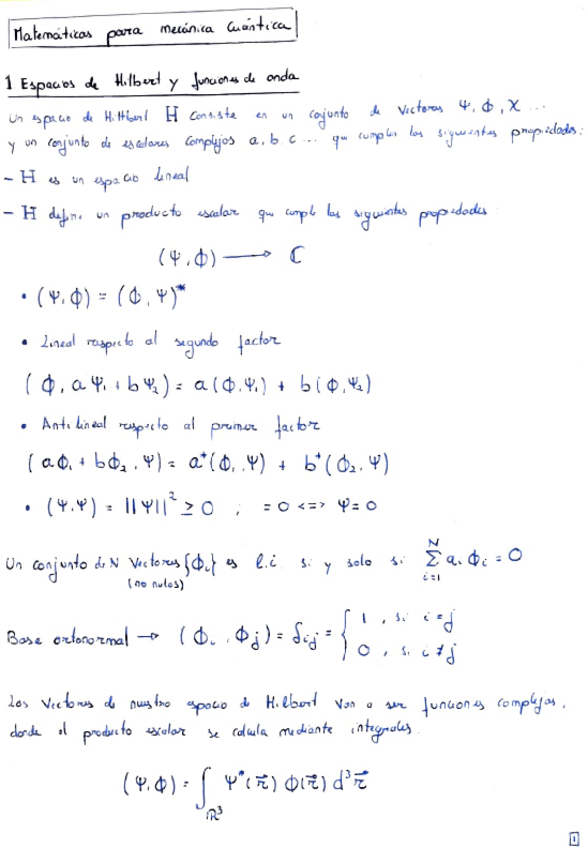 Matemáticas para mecánica Cuántica
1 Espacios de Hilbert y funciones de onda
Un espacio de Hilbert H consiste en un conjunto de vectores Ψ, Φ, X ...
y un conjunto de escalares complejos a, b, c ... que cumplen las siguientes propiedades:
- H es un espacio lineal
- H define un producto escalar que cumple las siguientes propiedades
(Ψ, Φ) ⟶ ℂ
• (Ψ, Φ) = (Φ, Ψ)*
• Lineal respecto al segundo factor
(Φ, aΨ₁ + bΨ₂) = a(Φ, Ψ₁) + b(Φ, Ψ₂)
• Antilineal respecto al primer factor
(aΦ₁ + bΦ₂, Ψ) = a*(Φ₁, Ψ) + b*(Φ₂, Ψ)
• (Ψ, Ψ) = ||Ψ||² ≥ 0 ; = 0 <=> Ψ = 0
Un conjunto de N Vectores {Φᵢ} es l.i. si y solo si ∑ᵢ₌₁ᴺ aᵢ Φᵢ = 0
(no nulos)
Base ortonormal → (Φᵢ, Φⱼ) = δᵢⱼ = { 1, si i = j
0, si i ≠ j
Los Vectores de nuestro espacio de Hilbert van a ser funciones complejas,
donde el producto escalar se calcula mediante integrales.
(Ψ, Φ) = ∫_ℝ³ Ψ*(r⃗) Φ(r⃗) d³r⃗
1